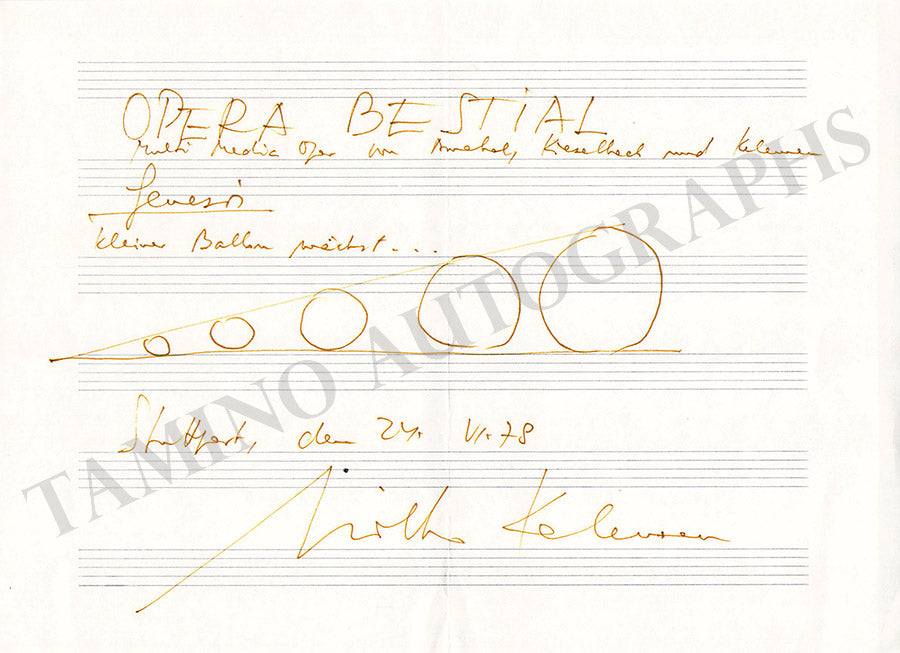 OPERA BESTIAL
Multi Media Oper von Arrabal, Kieselbach und Kelemen
Genesis
kleiner Ballon wächst...
Stuttgart, den 24. VI. 78
Milko Kelemen
TAMINO AUTOGRAPHS